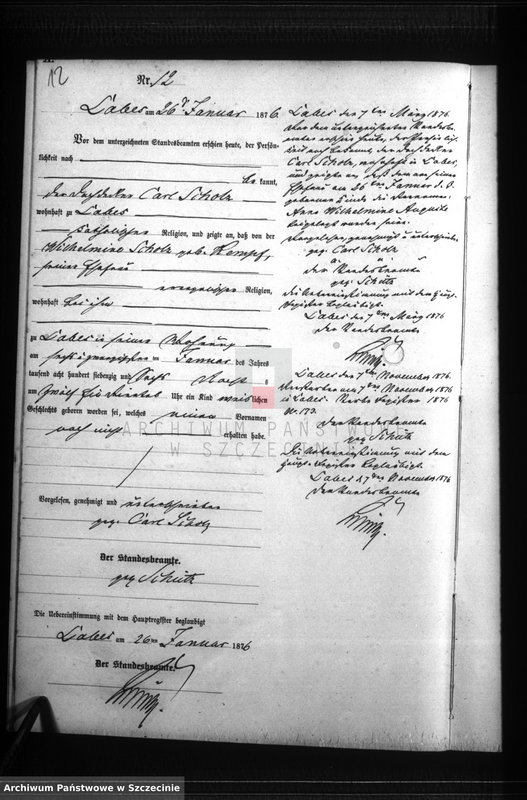 12
Nr. 12
Labes am 26t Januar 1876
Vor dem unterzeichneten Standesbeamten erschien heute, der Persön-
lichkeit nach
be kannt,
der Dachdecker Carl Scholz
wohnhaft zu Labes
katholischer Religion, und zeigte an, daß von der
Wilhelmine Scholz geb. Kempf,
seiner Ehefrau
evangelischer Religion,
wohnhaft bei ihm
zu Labes in seiner Wohnung
am sechs u zwanzigsten Januar des Jahres
tausend acht hundert siebenzig und sechs Nachts
um zwölf ein viertel Uhr ein Kind weiblichen
Geschlechts geboren worden sei, welches einen Vornamen
noch nicht erhalten habe.
Vorgelesen, genehmigt und unterschrieben
gez. Carl Scholz
Der Standesbeamte.
gez. Schütz
Die Uebereinstimmung mit dem Hauptregister beglaubigt
Labes am 26ten Januar 1876
Der Standesbeamte.
Labes den 7ten März 1876
Vor dem unterzeichneten Standesbe-
amten erschien heute, der Persönlich-
keit nach bekannt, der Dachdecker
Carl Scholz, wohnhaft in Labes,
und zeigte an, daß dem von seiner
Ehefrau am 26ten Januar d. J.
geborenen Kinde die Vornamen:
Anna Wilhelmine Auguste
beigelegt worden seien.
Vorgelesen, genehmigt u unterschrieben
gez. Carl Scholz
Der Standesbeamte
gez. Schütz
Die Uebereinstimmung mit dem Haupt-
Register beglaubigt.
Labes d 7ten März 1876
Der Standesbeamte
Labes den 7ten November 1876.
Verstorben am 7ten November 1876
in Labes. Sterbe Register 1876
Nr. 173.
Der Standesbeamte
gez Schütz
Die Uebereinstimmung mit dem
Haupt-Register beglaubigt.
Labes d 7ten November 1876
Der Standesbeamte
ARCHIWUM PAŃSTWOWE
W SZCZECINIE
Archiwum Państwowe w Szczecinie